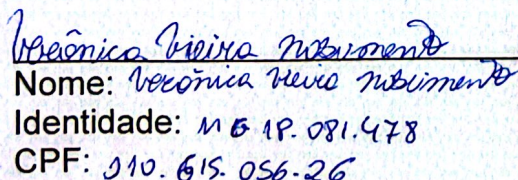 Verônica Vieira Nascimento
Nome: Verônica Vieira Nascimento
Identidade: MG 18.081.478
CPF: 910.615.056-26